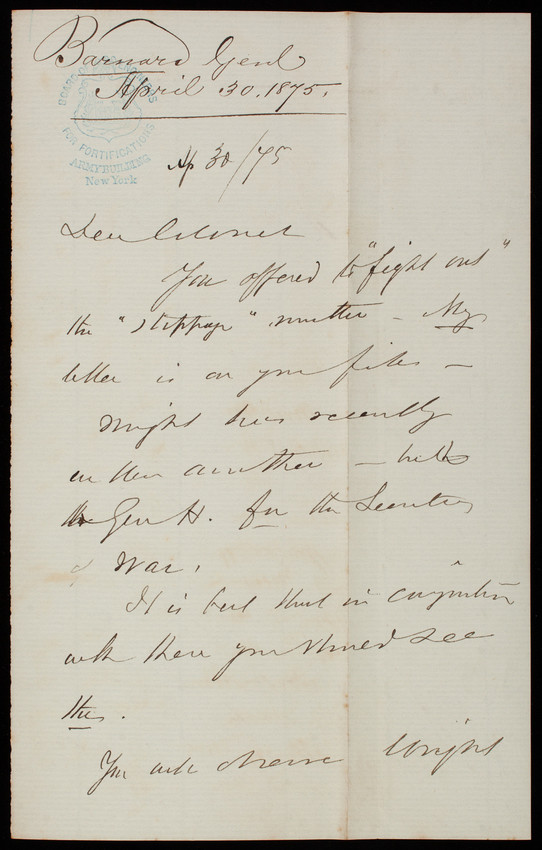 Barnard Genl
April 30. 1875.
BOARD OF ENGINEERS
FOR FORTIFICATIONS
ARMY BUILDING
New York
Ap 30/75
Dear Colonel
You offered to "fight out"
the "stoppage" matter – My
letter is on your files –
Wright has recently
written another –
Gen H. for the Secretary
of War.
It is best that in conjunction
with these you should see
this.
You will observe Wright